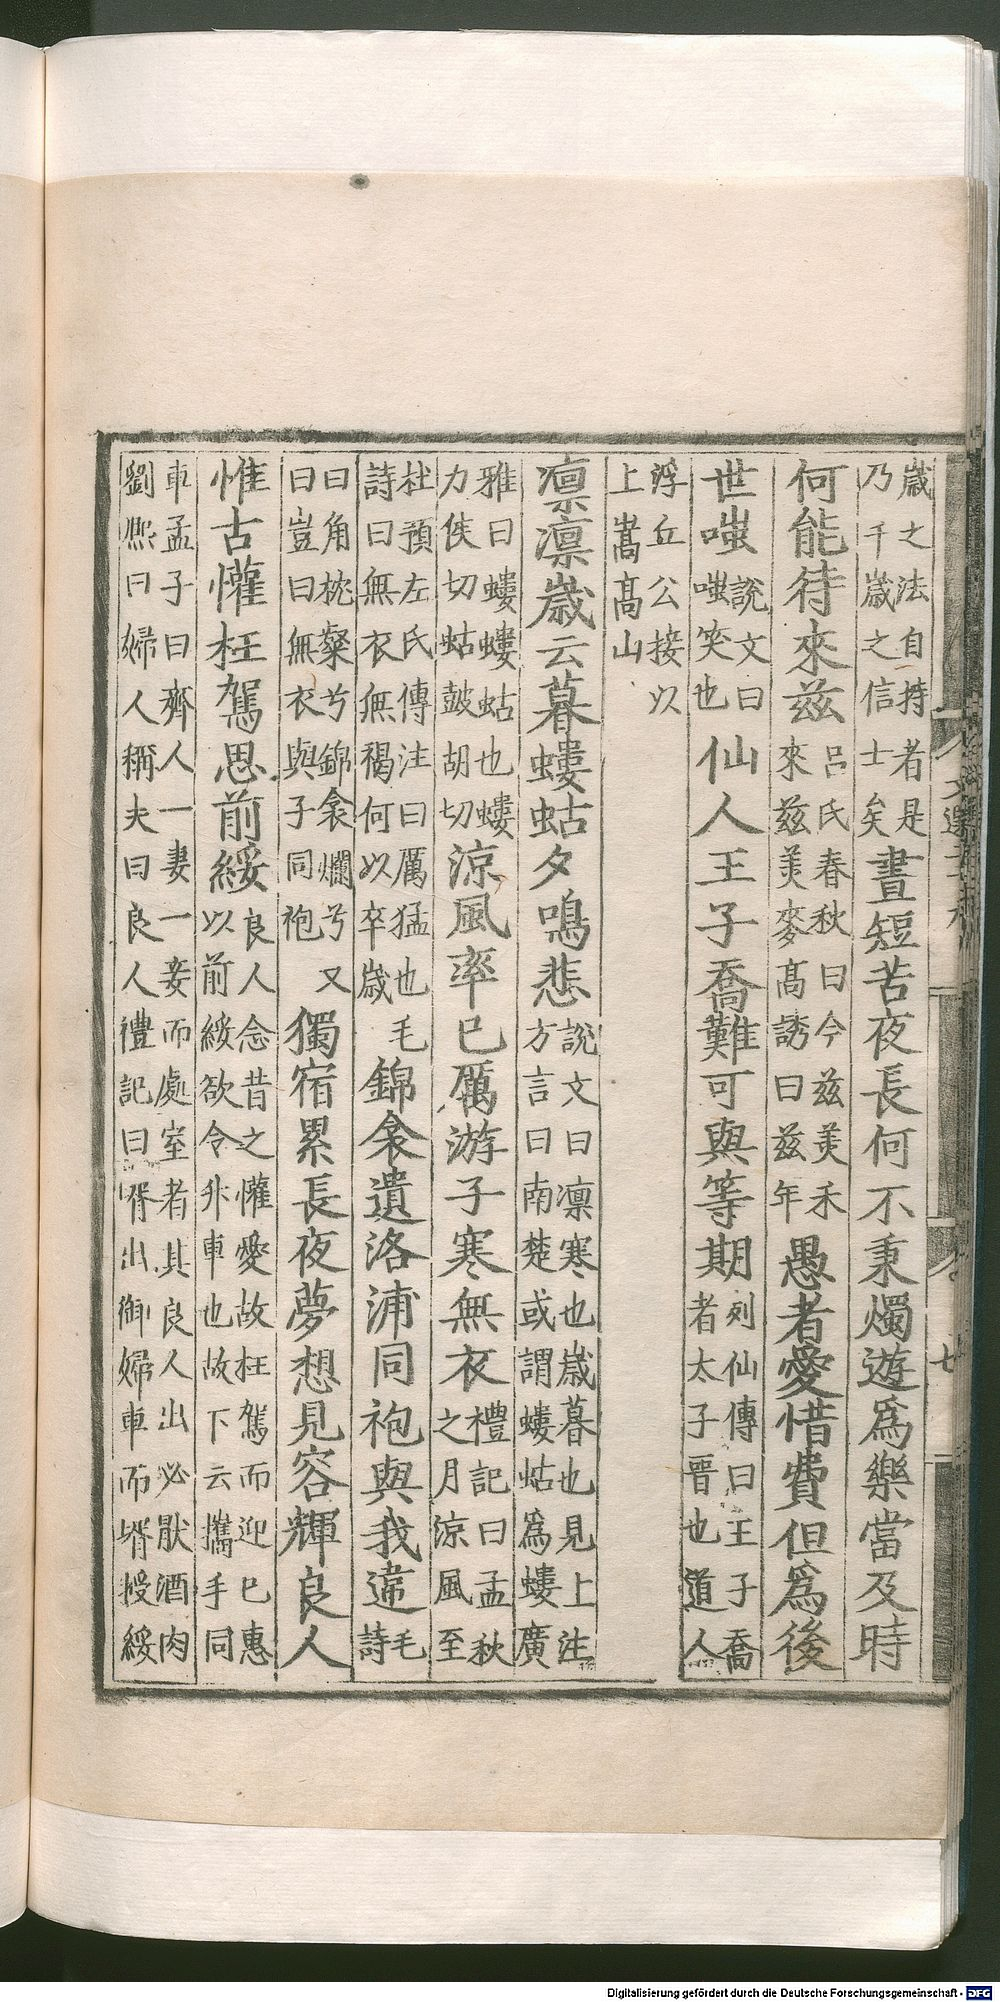 歲之法自持者是乃千歲之信士矣晝短苦夜長何不秉燭遊爲樂當及時
何能待來茲呂氏春秋曰今茲美禾來茲美麥高誘曰茲年愚者愛惜費但爲後
世嗤說文曰嗤笑也仙人王子喬難可與等期列仙傳曰王子喬者太子晉也道人
浮丘公接以上嵩高山
凛凛歲云暮螻蛄夕鳴悲說文曰凛寒也歲暮也見上注方言曰南楚或謂螻蛄爲螻廣
雅曰螻螻蛄也螻力侯切蛄鼓胡切涼風率已厲游子寒無衣禮記曰孟秋之月涼風至
杜預左氏傳注曰厲猛也毛詩曰無衣無褐何以卒歲錦衾遺洛浦同袍與我違毛詩
曰角枕粲兮錦衾爛兮又曰豈曰無衣與子同袍獨宿累長夜夢想見容輝良人
惟古懽枉駕思前綏良人念昔之懽愛故枉駕而迎已惠以前綏欲令升車也故下云攜手同
車孟子曰齊人一妻一妾而處室者其良人出必猒酒肉劉熙曰婦人稱夫曰良人禮記曰壻出御婦車而壻授綏
Digitalisierung gefördert durch die Deutsche Forschungsgemeinschaft - DFG